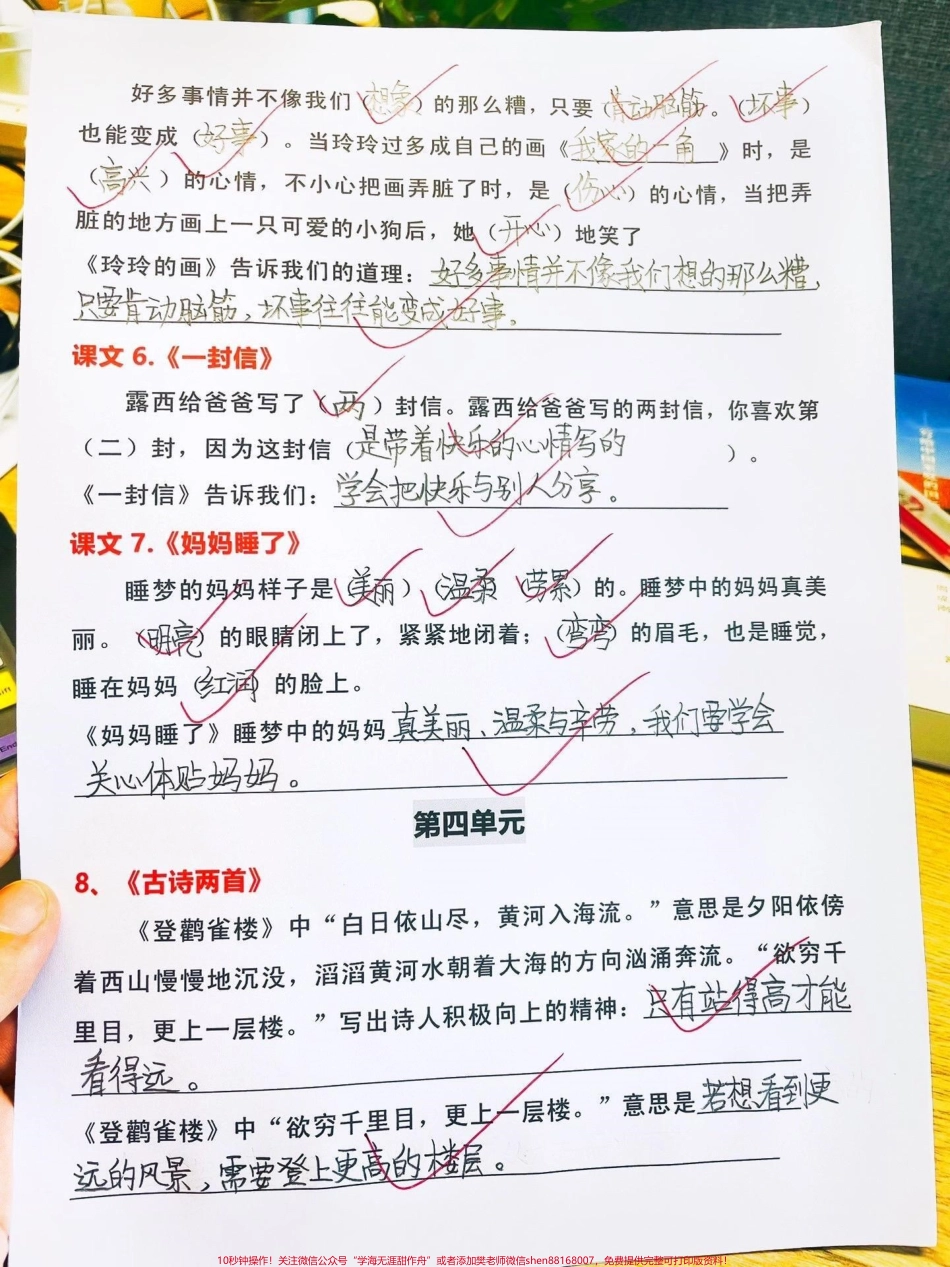 好多事情并不像我们（想象）的那么糟，只要（肯动脑筋。（坏事）
也能变成（好事）。当玲玲过多成自己的画《我家的一角》时，是
（高兴）的心情，不小心把画弄脏了时，是（伤心）的心情，当把弄
脏的地方画上一只可爱的小狗后，她（开心）地笑了
《玲玲的画》告诉我们的道理：好多事情并不像我们想的那么糟，
只要肯动脑筋，坏事往往能变成好事。
课文 6.《一封信》
露西给爸爸写了（两）封信。露西给爸爸写的两封信，你喜欢第
（二）封，因为这封信（是带着快乐的心情写的）。
《一封信》告诉我们：学会把快乐与别人分享。
课文 7.《妈妈睡了》
睡梦的妈妈样子是（美丽）（温柔 （劳累）的。睡梦中的妈妈真美
丽。（明亮）的眼睛闭上了，紧紧地闭着；（弯弯）的眉毛，也是睡觉，
睡在妈妈（红润）的脸上。
《妈妈睡了》睡梦中的妈妈真美丽、温柔与辛劳，我们要学会
关心体贴妈妈。
第四单元
8、《古诗两首》
《登鹳雀楼》中“白日依山尽，黄河入海流。”意思是夕阳依傍
着西山慢慢地沉没，滔滔黄河水朝着大海的方向汹涌奔流。“欲穷千
里目，更上一层楼。”写出诗人积极向上的精神：只有站得高才能
看得远。
《登鹳雀楼》中“欲穷千里目，更上一层楼。”意思是若想看到更
远的风景，需要登上更高的楼层。
10秒钟操作！关注微信公众号“学海无涯甜作舟”或者添加樊老师微信shen88168007，免费提供完整可打印版资料！